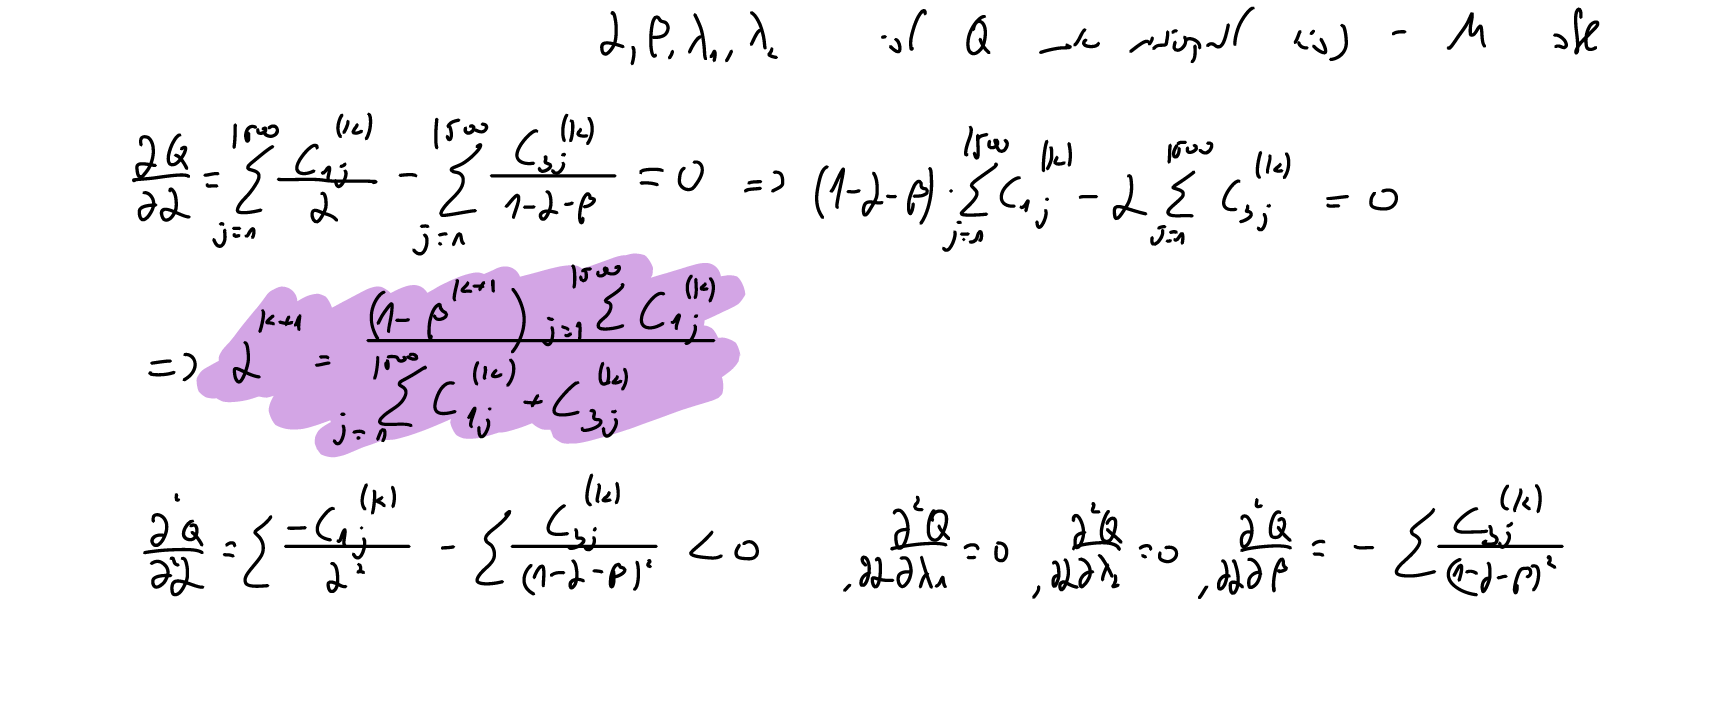 שלב M - נרצה למקסם את Q לפי α, β, λ₁, λ₂
∂Q/∂α = Σ_{j=1}^{1500} C_{1j}^{(k)}/α - Σ_{j=1}^{1500} C_{3j}^{(k)}/(1-α-β) = 0 => (1-α-β)·Σ_{j=1}^{1500} C_{1j}^{(k)} - α Σ_{j=1}^{1500} C_{3j}^{(k)} = 0
=> α^{k+1} = (1-β^{k+1}) Σ_{j=1}^{1500} C_{1j}^{(k)} / Σ_{j=1}^{1500} C_{1j}^{(k)} + C_{3j}^{(k)}
∂²Q/∂²α = Σ -C_{1j}^{(k)}/α² - Σ C_{3j}^{(k)}/(1-α-β)² < 0 , ∂²Q/∂α∂λ₁ = 0 , ∂²Q/∂α∂λ₂ = 0 , ∂²Q/∂α∂β = - Σ C_{3j}^{(k)}/(1-α-β)²